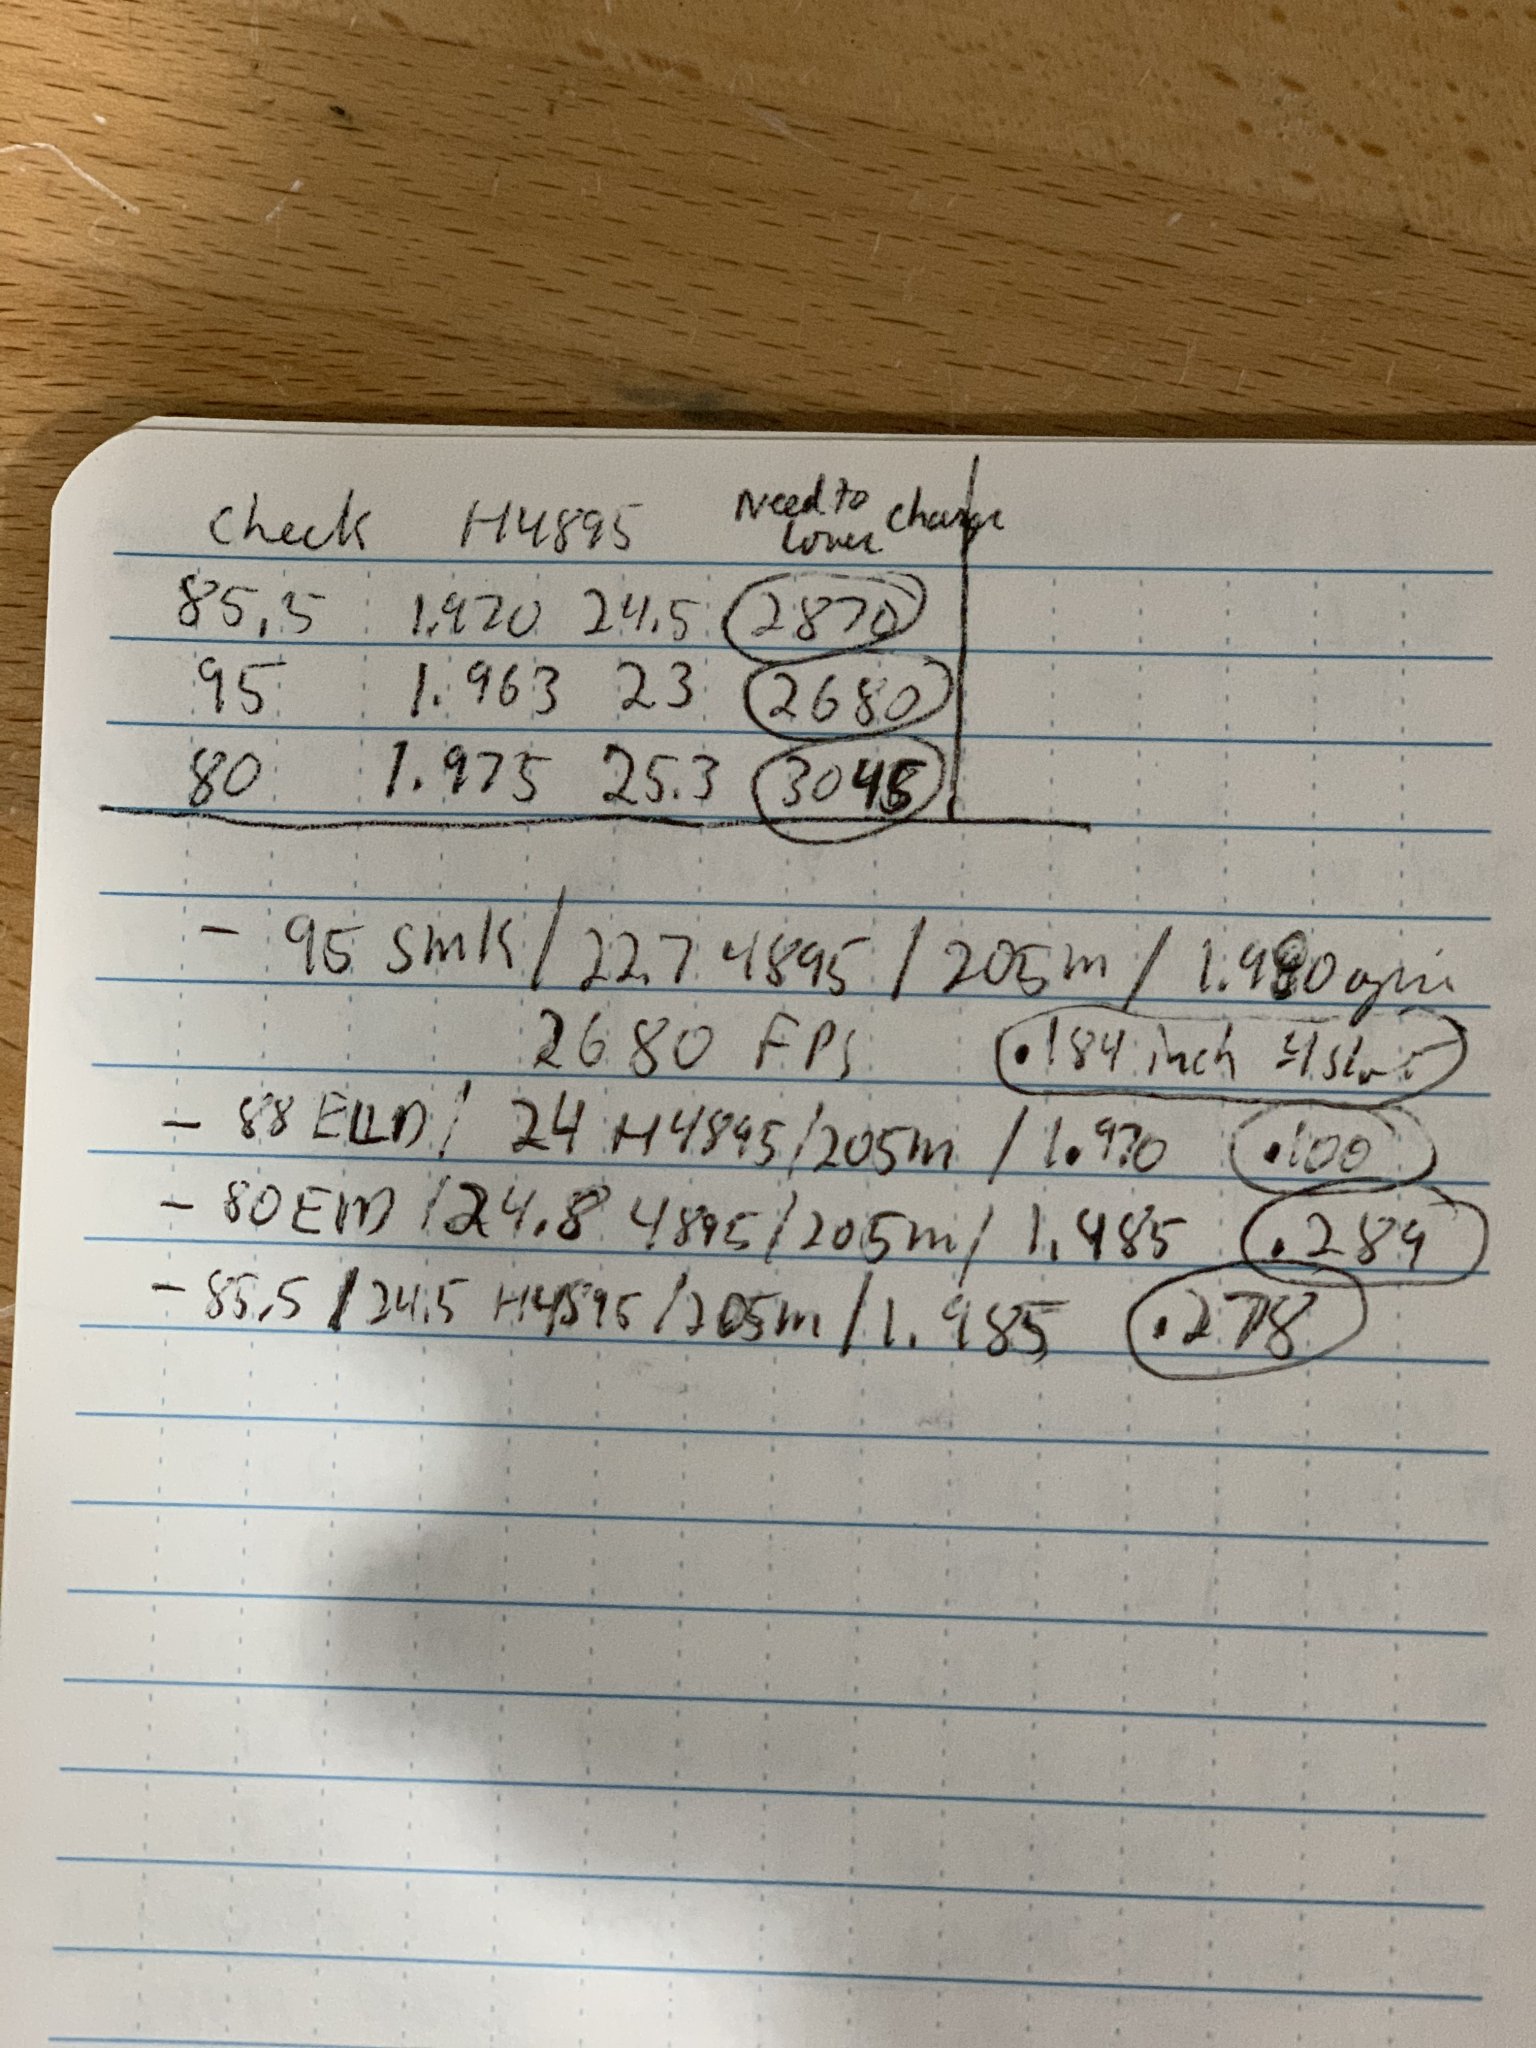 Check H4895 Need to lower charge
85.5 1.970 24.5 2870
95 1.963 23 2680
80 1.975 25.3 3045
- 95 SMK / 22.7 4895 / 205m / 1.980
2680 FPS .184 inch
- 88 ELD / 24 H4895 / 205m / 1.970 .100
- 80 ELD / 24.8 4895 / 205m / 1.485 .289
- 85.5 / 24.5 H4895 / 205m / 1.985 .278